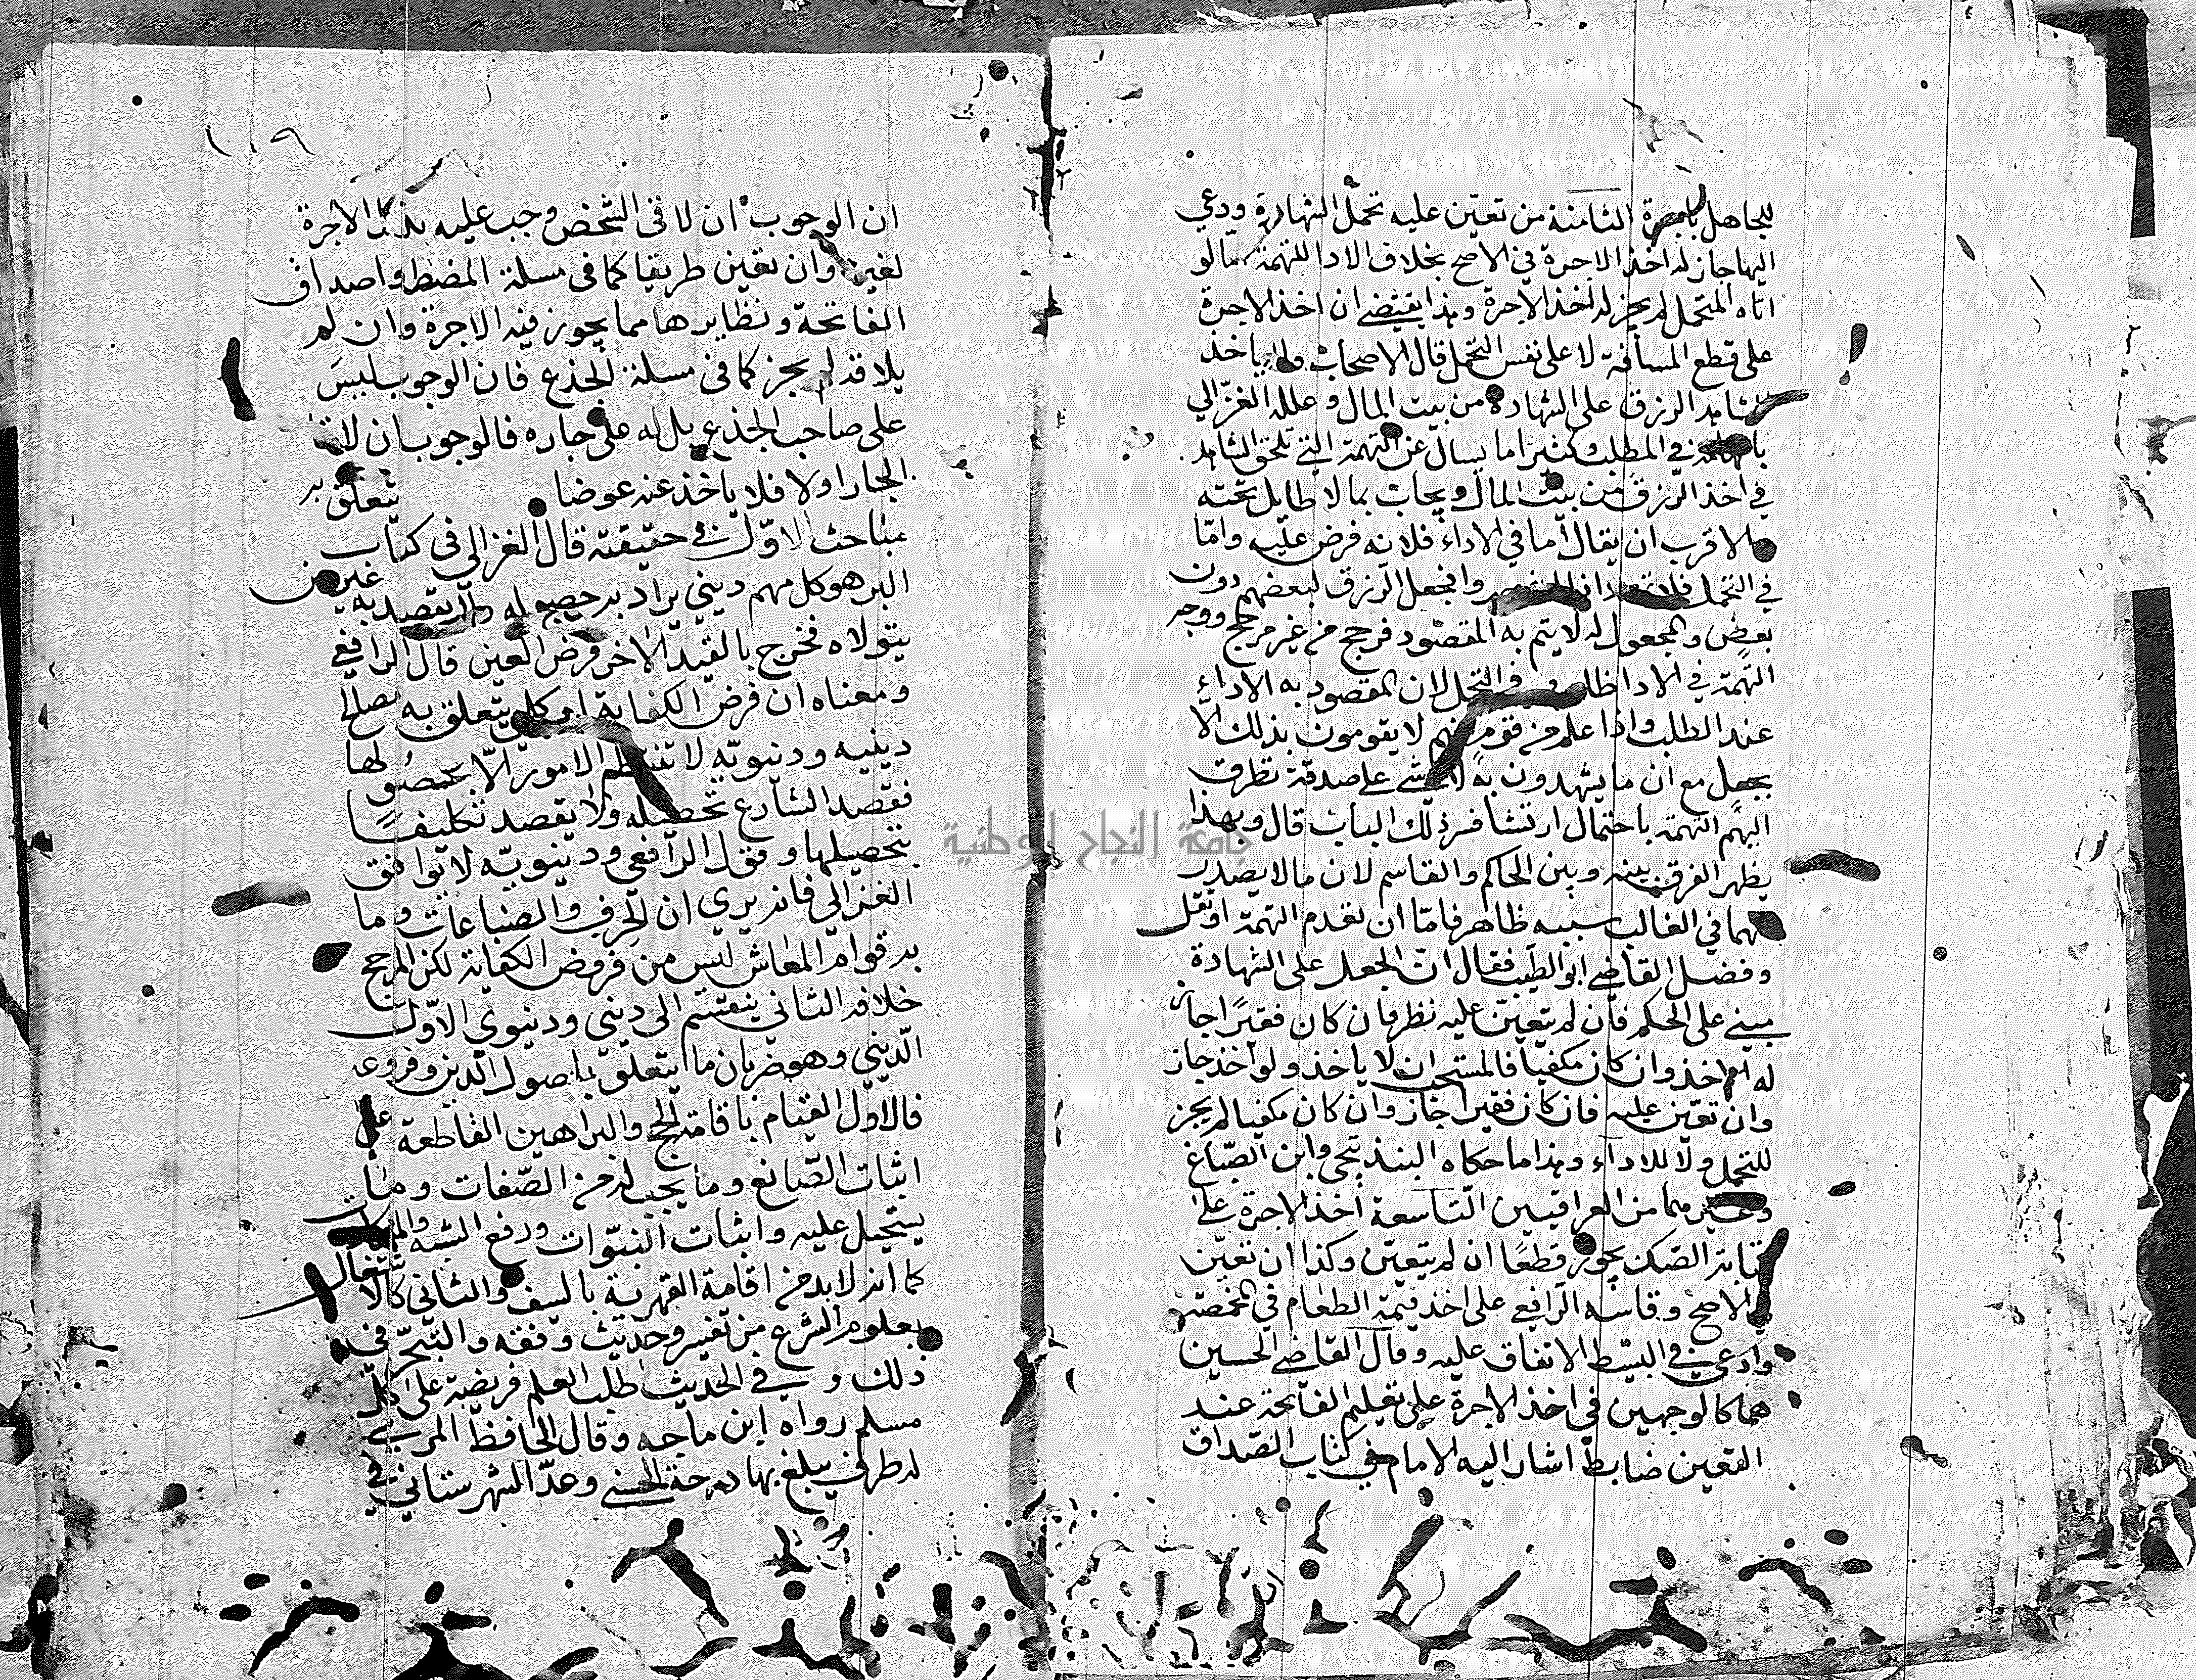 للجاهل بالأجرة الثامنة من تعيّن عليه تحمل الشهادة ودعي
اليها جاز له اخذ الاجرة في الاصح بخلاف الادا للتهمة امّا لو
اتاه المتحمل لم يجز له اخذ الاجرة وهذا يقتضي ان اخذ الاجرة
على قطع المسافة لا على نفس التحمل قال الاصحاب ولا ياخذ
الشاهد الرزق على الشهادة من بيت المال وعلله الغزّالي
في المطلب كثيرا ما يسال عن التهمة التي تلحق الشاهد
في اخذ الرّزق من بيت المال ويجاب بما لا طايل تحته
والاقرب ان يقال امّا في الاداء فلانه فرض عليه وامّا
في التحمل وانجعل الرّزق لبعضهم دون
بعض والمجعول له لا يتم به المقصود فرجح من غير مرجح ووجه
التهمة في الادا ظاهر وفي التحمل لان المقصود به الاداء
عند الطلب واذا علم من قوم انهم لا يقومون بذلك الاّ
بجعل مع ان ما يشهدون به لا شي على صدقه تطرق
اليهم التهمة باحتمال ارتشا فسر ذلك الباب قال وبهذا
يظهر الفرق بينه وبين الحاكم والقاسم لان ما لا يصدر
منهما في الغالب سببه ظاهر فامّا ان تعدم التهمة او تقل
وفصل القاضي ابو الطيب فقال انّ الجعل على الشهادة
مبني على الحكم فان لم يتعيّن عليه نظر فان كان فقيرًا جاز
له اخذ وان كان مكفيا فالمستحب ان لا ياخذ ولو اخذ جاز
وان تعيّن عليه فان كان فقيرا جاز وان كان مكفيا لم يجز
للتحمل ولا للاداء وهذا ما حكاه البندنيجي وابن الصّباغ
وغيرهما من العراقيين التاسعة اخذ الاجرة على
كتابة الصّك يجوز قطعًا ان لم يتعيّن وكذا ان تعيّن
في الاصح وقاسه الرّافعي على اخذ قيمة الطعام في المخمصة
وادّعى في البسيط الاتفاق عليه وقال القاضي الحسين
هما كالوجهين في اخذ الاجرة على تعليم الفاتحة عند
التعين ضابط اشار اليه الامام في كتاب الصّداق
١٠٩
ان الوجوب ان لاقى الشخص وجب عليه بذل الاجرة
لغيره وان تعين طريقا كما في مسلة المضطر واصداق
الفاتحة ونظايرها مما يجوز فيه الاجرة وان لم
يلاقه لم يجز كما في مسلة الجذع فان الوجوب ليس
على صاحب الجذع بل له على جاره فالوجوب ان لاقى
الجار اولا فلا ياخذ عنه عوضا يتعلق به
مباحث الاوّل في حقيقته قال الغزالي في كتاب
البر هو كل مهم ديني يراد به حصوله ولا يقصد به غير من
يتولاه فخرج بالقيد الاخر فرض العين قال الرافعي
ومعناه ان فرض الكفاية امر كلي يتعلق به مصالح
دينيه ودنيويّه لا تنتظم الامور الاّ بحصولها
فقصد الشارع تحصيله ولا يقصد تكليفًا
بتحصيلها وقول الرافعي ودنيويّه لا يوافق
الغزالي فانه يري ان الحرف والصناعات وما
به قوام المعاش ليس من فروض الكفاية لكن المرجح
خلافه الثاني ينقسم الى ديني ودنيوي الاوّل
الدّيني وهو ضربان ما يتعلق باصول الدّين وفروعه
فالاوّل القيام باقامة الحجج والبراهين القاطعة على
اثبات الصّانع وما يجب له من الصّفات وما
يستحيل عليه واثبات النبوّات ودفع الشبه
كما انه لا بد من اقامة القهرية بالسيف والثاني كالاشتغال
بعلوم الشرع من تفسير وحديث وفقه والتبحّر في
ذلك وفي الحديث طلب العلم فريضة على كل
مسلم رواه ابن ماجه وقال الحافظ المزي
له طرق يبلغ بها درجة الحسن وعدّ الشهرستاني في
جامعة النجاح الوطنية